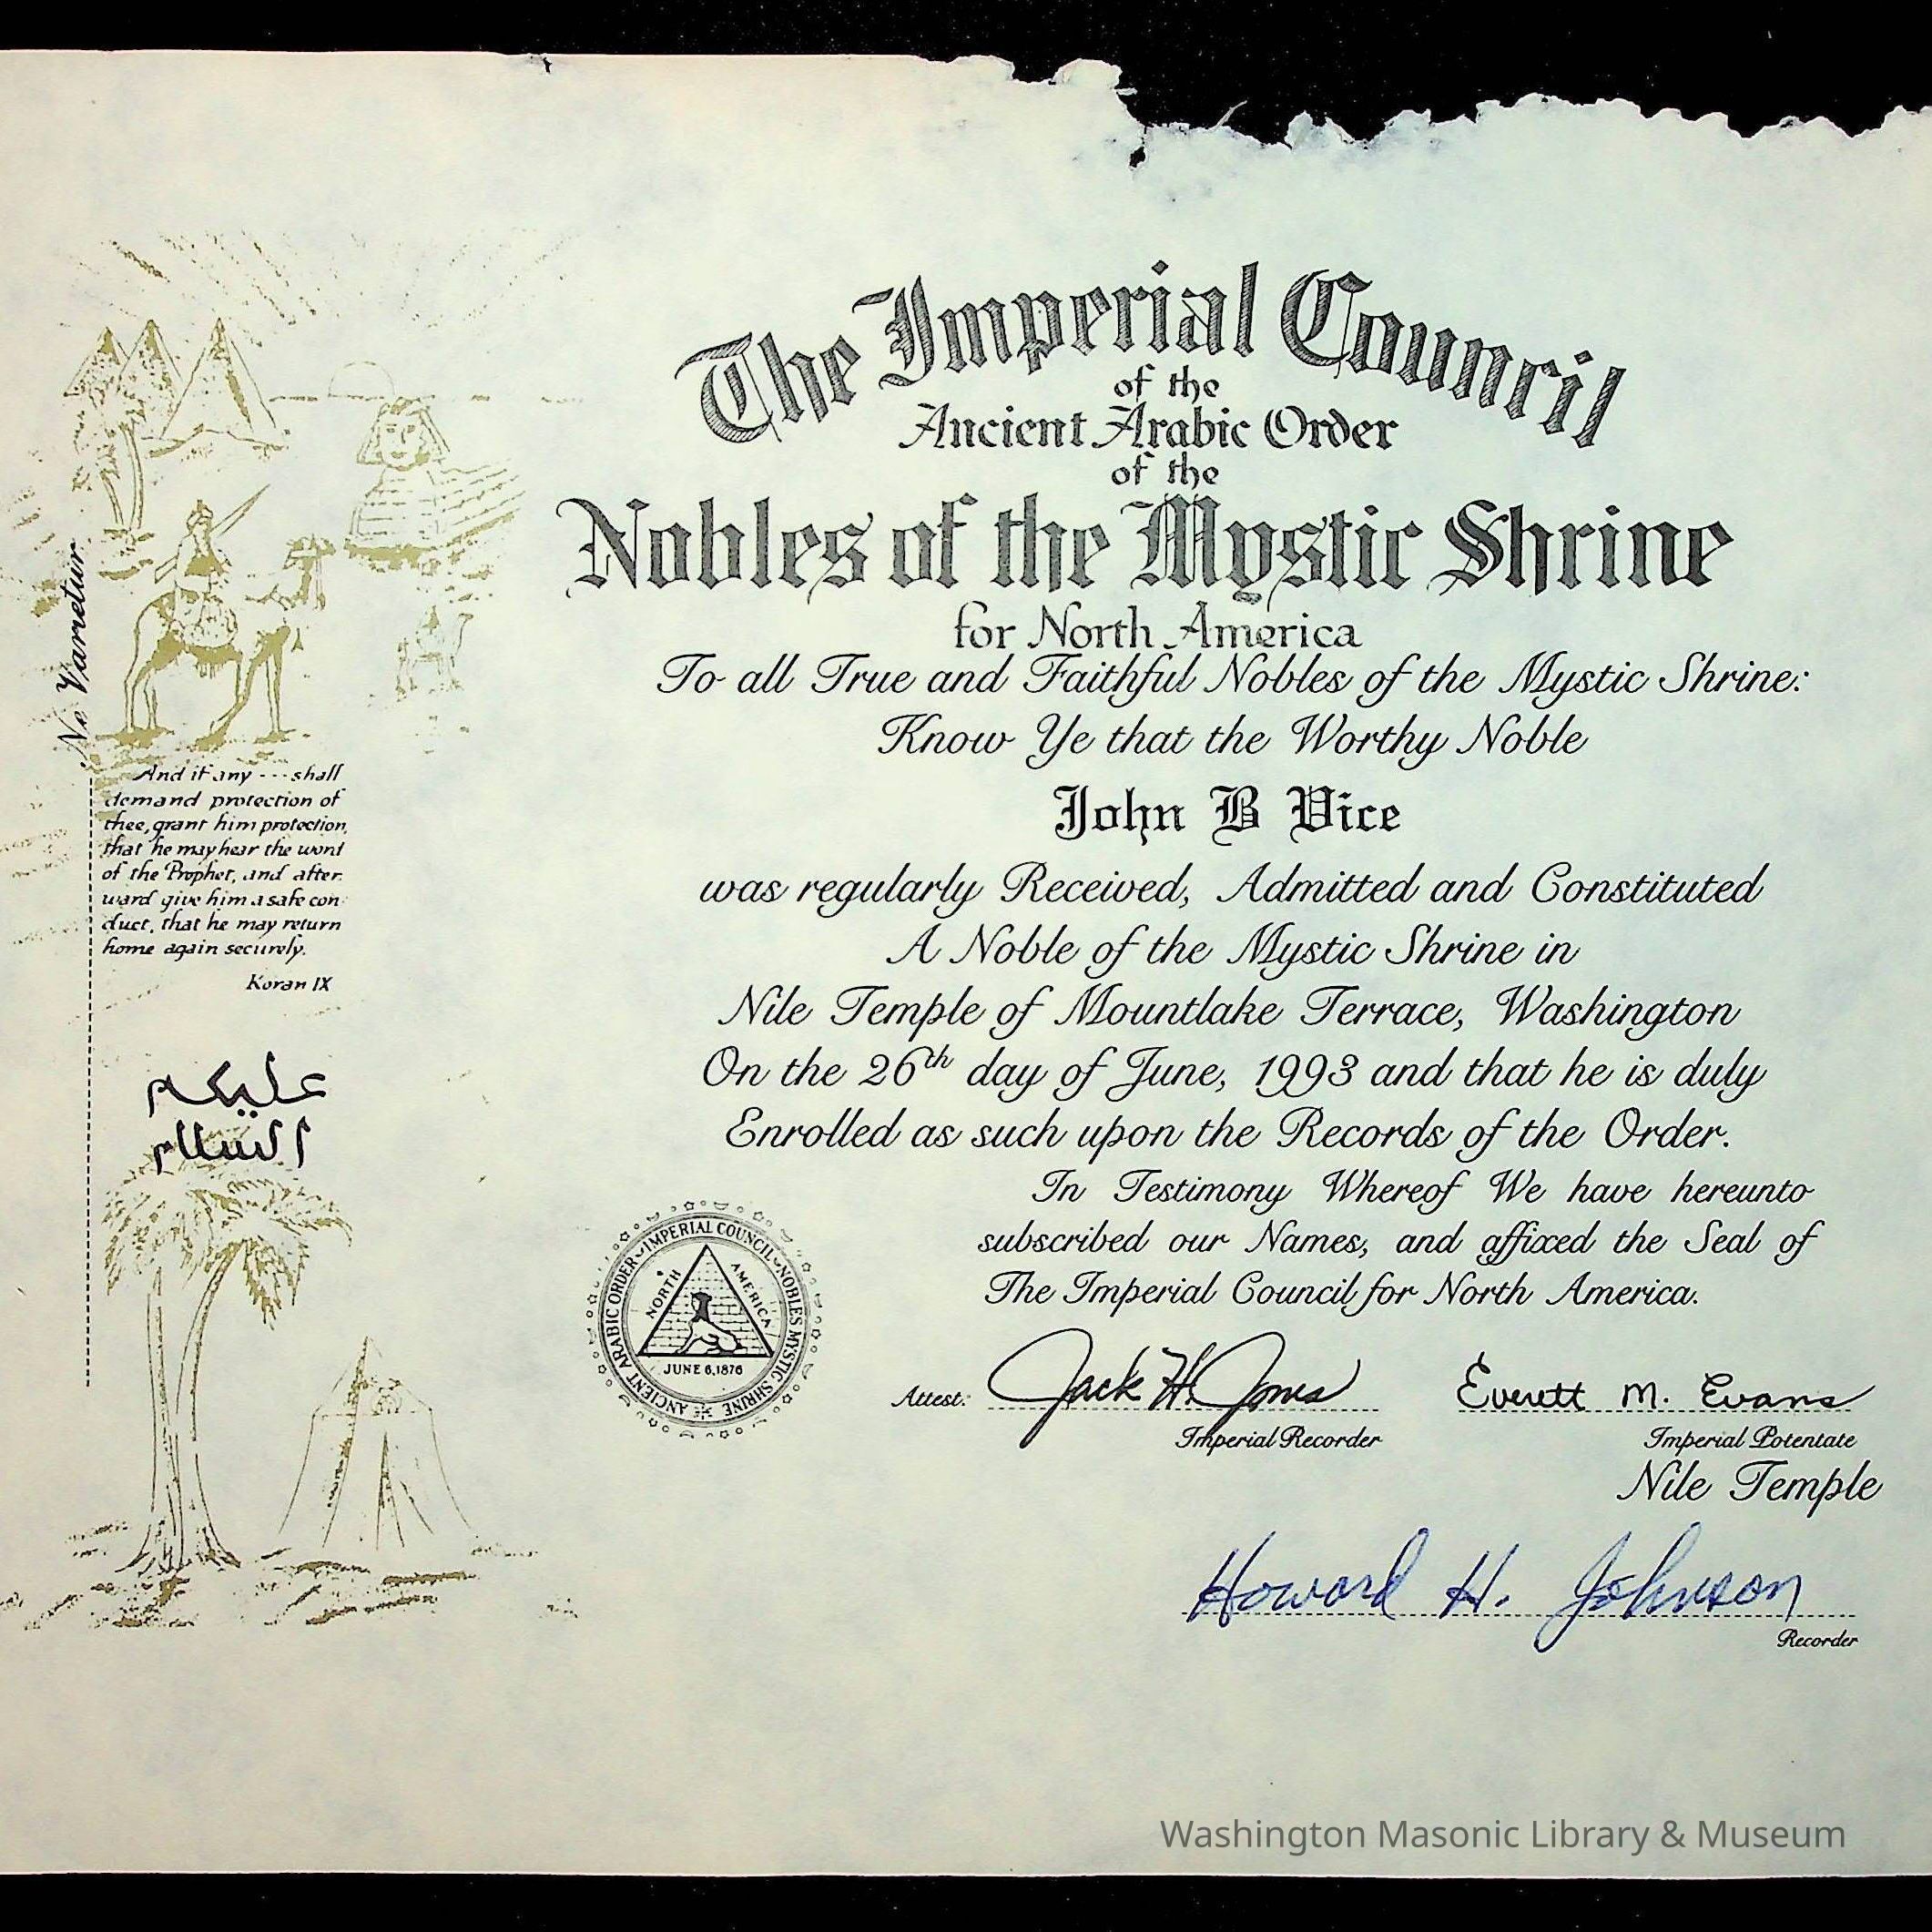 The Imperial Council
of the
Ancient Arabic Order
of the
Nobles of the Mystic Shrine
for North America
To all True and Faithful Nobles of the Mystic Shrine:
Know Ye that the Worthy Noble
John B Vice
was regularly Received, Admitted and Constituted
A Noble of the Mystic Shrine in
Nile Temple of Mountlake Terrace, Washington
On the 26th day of June, 1993 and that he is duly
Enrolled as such upon the Records of the Order.
In Testimony Whereof We have hereunto
subscribed our Names, and affixed the Seal of
The Imperial Council for North America.
Attest: Jack H. Jones
Imperial Recorder
Everett M. Evans
Imperial Potentate
Nile Temple
Howard H. Johnson
Recorder
Ne Varietur
And if any --- shall
demand protection of
thee, grant him protection,
that he may hear the word
of the Prophet, and after
ward give him a safe con
duct, that he may return
home again securely.
Koran IX
عليكم
السلام
IMPERIAL COUNCIL NOBLES MYSTIC SHRINE
ANCIENT ARABIC ORDER
NORTH AMERICA
JUNE 6, 1876
Washington Masonic Library & Museum